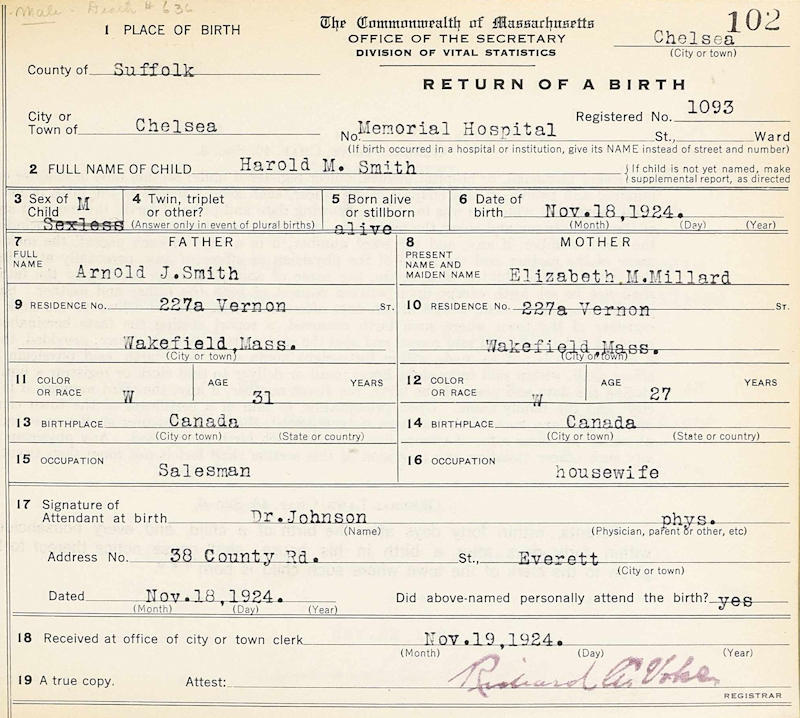 Male - Death # 636
The Commonwealth of Massachusetts
102
1 PLACE OF BIRTH
OFFICE OF THE SECRETARY
Chelsea
DIVISION OF VITAL STATISTICS
(City or town)
County of Suffolk
RETURN OF A BIRTH
Registered No. 1093
City or
Town of Chelsea
No. Memorial Hospital St., Ward
(If birth occurred in a hospital or institution, give its NAME instead of street and number)
2 FULL NAME OF CHILD Harold M. Smith
{ If child is not yet named, make
{ supplemental report, as directed
3 Sex of Child M Sexless
4 Twin, triplet or other?
(Answer only in event of plural births)
5 Born alive or stillborn alive
6 Date of birth Nov.18,1924.
(Month) (Day) (Year)
7 FATHER
FULL NAME
Arnold J.Smith
8 MOTHER
PRESENT NAME AND MAIDEN NAME
Elizabeth M.Millard
9 RESIDENCE No. 227a Vernon ST.
10 RESIDENCE No. 227a Vernon ST.
Wakefield,Mass.
(City or town)
Wakefield,Mass.
(City or town)
11 COLOR OR RACE W AGE 31 YEARS
12 COLOR OR RACE W AGE 27 YEARS
13 BIRTHPLACE Canada
(City or town) (State or country)
14 BIRTHPLACE Canada
(City or town) (State or country)
15 OCCUPATION
Salesman
16 OCCUPATION
housewife
17 Signature of
Attendant at birth Dr.Johnson phys.
(Name) (Physician, parent or other, etc)
Address No. 38 County Rd. St., Everett
(City or town)
Dated Nov.18,1924. Did above-named personally attend the birth? yes
(Month) (Day) (Year)
18 Received at office of city or town clerk Nov.19,1924.
(Month) (Day) (Year)
19 A true copy. Attest: Richard A. Voke
REGISTRAR